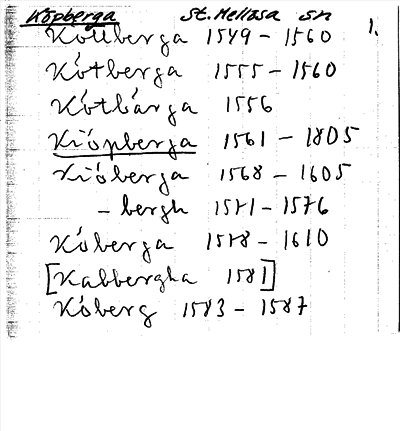 Köpberga St. Mellösa sn 1.
Köttberga 1549 - 1560
Kötberga 1555 - 1560
Kötbärga 1556
Kiöpberga 1561 - 1805
Kiöberga 1568 - 1605
- bergh 1571 - 1576
Köberga 1578 - 1610
[Kabbergha 1581]
Köberg 1583 - 1587